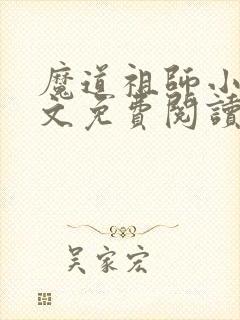 魔道祖師小
文免費閱讀
吴家宏